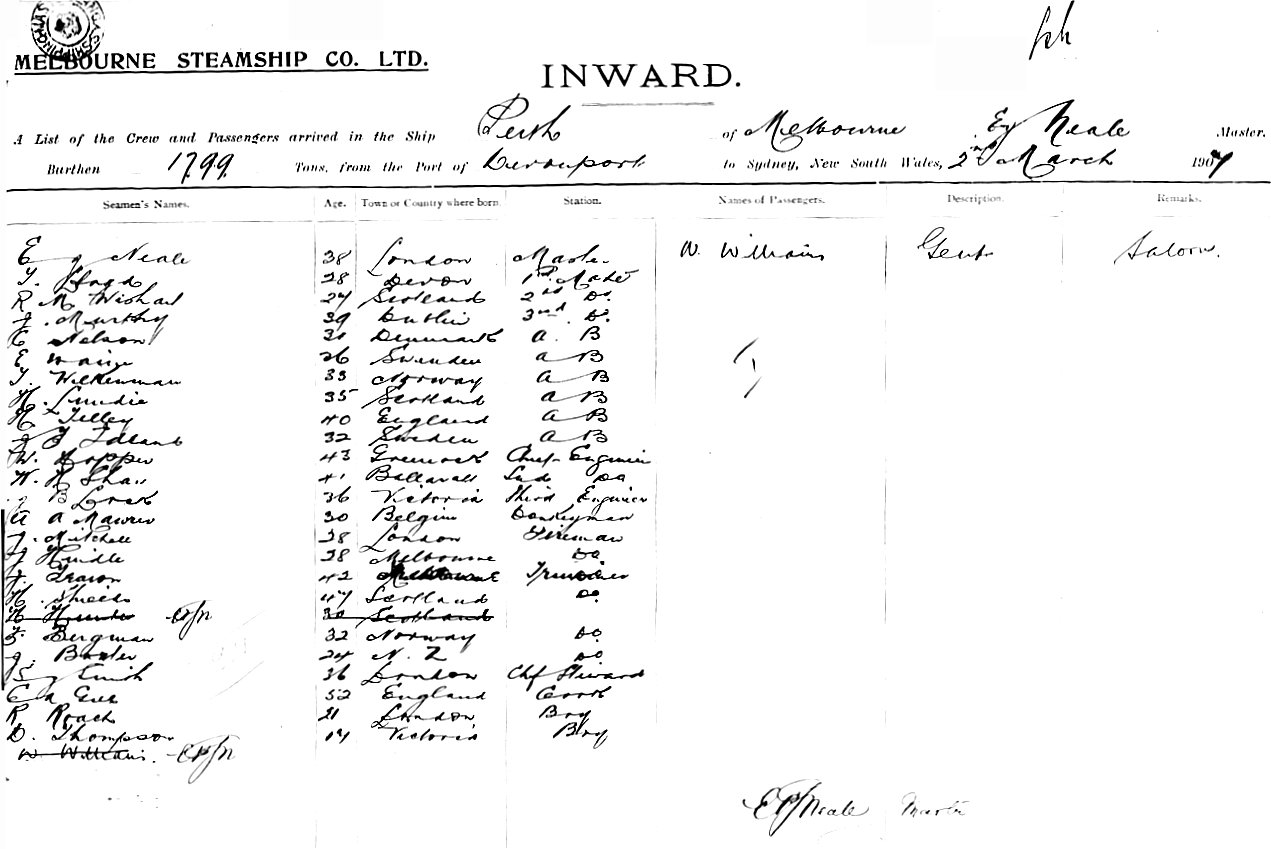 MELBOURNE STEAMSHIP CO. LTD.
INWARD.
A List of the Crew and Passengers arrived in the Ship Perth of Melbourne E Neale Master.
Burthen 1799 Tons, from the Port of Devonport to Sydney, New South Wales, 2nd March 1907
Seamen's Names. Age. Town or Country where born. Station. Names of Passengers. Description. Remarks.
E J Neale 38 London Master W. Williams Gent Saloon.
28 Devon 1st Mate
R M Wishart 24 Scotland 2nd Do.
J. Murphy 39 Dublin 3rd Do.
C Nelson 31 Denmark A. B
E 26 Sweeden A B
T. Wilkenman 33 Norway A B
H. Lundie 35 Scotland A B
H Tilley 40 England A B
32 Sweden A B
W. Hopper 43 Greenock Chief Engineer
W. H Shaw 41 Ballarat 2nd Do
B Lock 36 Victoria Third Engineer
A A 30 Belgium Donkeyman
J. Mitchell 28 London Fireman
J Hindle 28 Melbourne Do
42 Trimmer
H. Shields 47 Scotland Do.
H Hunter EJN 30 Scotland
F. Bergman 32 Norway Do.
J. Baxter 24 N. Z Do
Smith 36 London Chf Steward
C A 52 England Cook
R. Roach 21 London Boy
D. Thompson 17 Victoria Boy
W Williams. EJN
EJ Neale Master